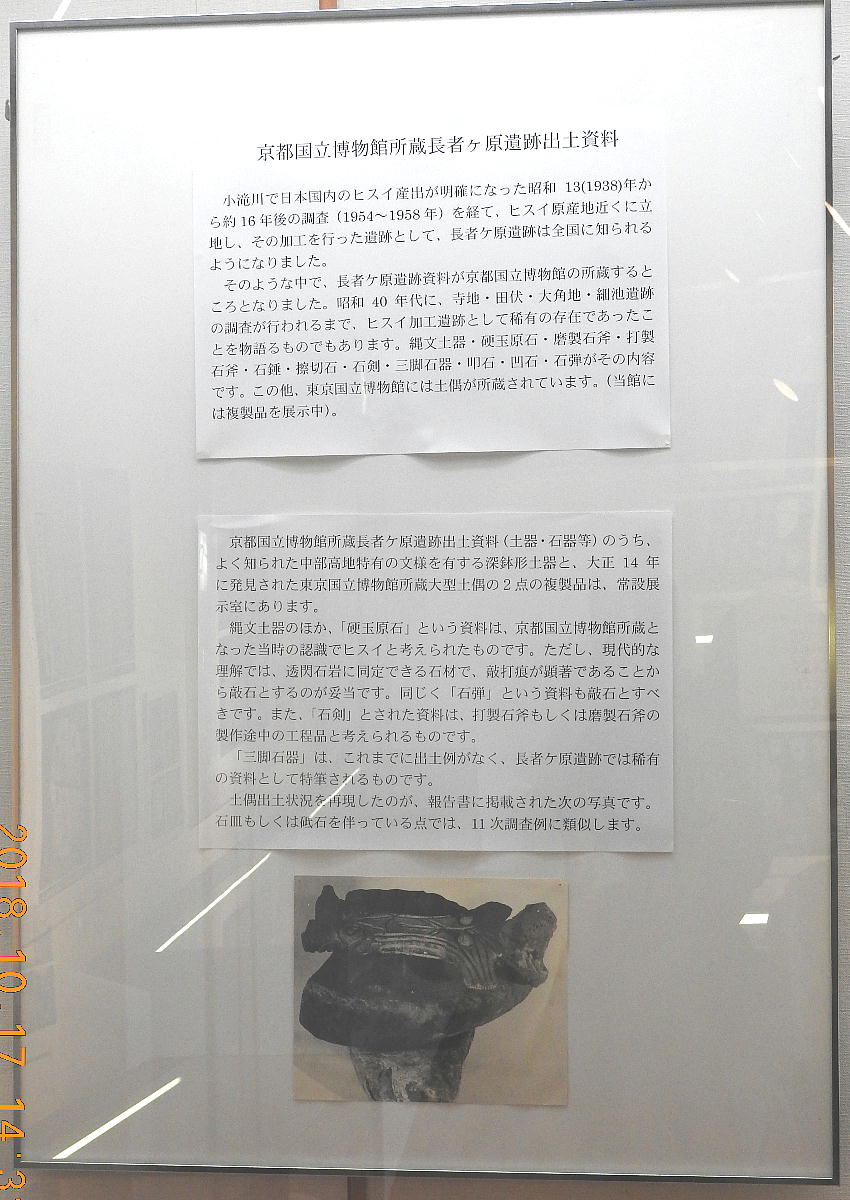 京都国立博物館所蔵長者ヶ原遺跡出土資料
小滝川で日本国内のヒスイ産出が明確になった昭和 13(1938)年か
ら約 16 年後の調査（1954～1958 年）を経て、ヒスイ原産地近くに立
地し、その加工を行った遺跡として、長者ケ原遺跡は全国に知られる
ようになりました。
そのような中で、長者ケ原遺跡資料が京都国立博物館の所蔵すると
ころとなりました。昭和 40 年代に、寺地・田伏・大角地・細池遺跡
の調査が行われるまで、ヒスイ加工遺跡として稀有の存在であったこ
とを物語るものでもあります。縄文土器・硬玉原石・磨製石斧・打製
石斧・石錘・擦切石・石剣・三脚石器・叩石・凹石・石弾がその内容
です。この他、東京国立博物館には土偶が所蔵されています。(当館に
は複製品を展示中)。
京都国立博物館所蔵長者ケ原遺跡出土資料（土器・石器等）のうち、
よく知られた中部高地特有の文様を有する深鉢形土器と、大正 14 年
に発見された東京国立博物館所蔵大型土偶の２点の複製品は、常設展
示室にあります。
縄文土器のほか、「硬玉原石」という資料は、京都国立博物館所蔵と
なった当時の認識でヒスイと考えられたものです。ただし、現代的な
理解では、透閃石岩に同定できる石材で、敲打痕が顕著であることか
ら敲石とするのが妥当です。同じく「石弾」という資料も敲石とすべ
きです。また、「石剣」とされた資料は、打製石斧もしくは磨製石斧の
製作途中の工程品と考えられるものです。
「三脚石器」は、これまでに出土例がなく、長者ケ原遺跡では稀有
の資料として特筆されるものです。
土偶出土状況を再現したのが、報告書に掲載された次の写真です。
石皿もしくは砥石を伴っている点では、11 次調査例に類似します。
2018 10 17 14:3